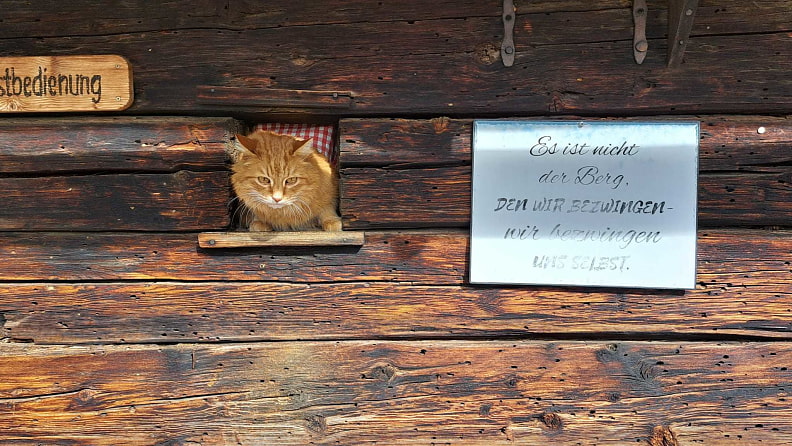 stbedienung
Es ist nicht
der Berg,
DEN WIR BEZWINGEN-
wir bezwingen
UNS SELBST.